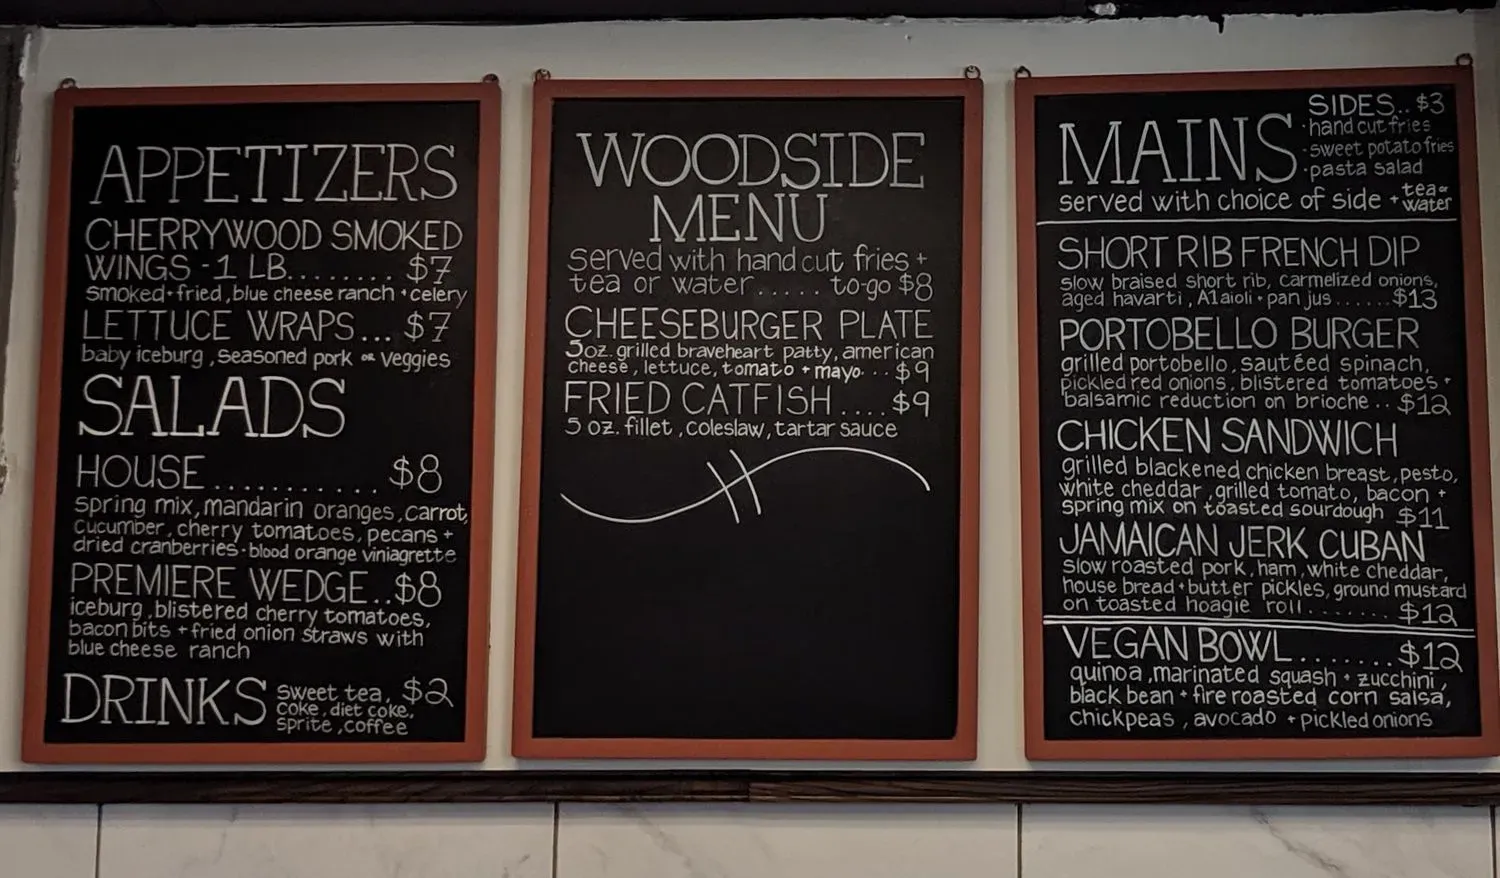 APPETIZERS
CHERRYWOOD SMOKED
WINGS - 1 LB........ $7
smoked + fried, blue cheese ranch + celery
LETTUCE WRAPS... $7
baby iceburg, seasoned pork or veggies
SALADS
HOUSE............ $8
spring mix, mandarin oranges, carrot,
cucumber, cherry tomatoes, pecans +
dried cranberries · blood orange viniagrette
PREMIERE WEDGE..$8
iceburg, blistered cherry tomatoes,
bacon bits + fried onion straws with
blue cheese ranch
DRINKS
sweet tea, $2
coke, diet coke,
sprite, coffee
WOODSIDE
MENU
served with hand cut fries +
tea or water..... to-go $8
CHEESEBURGER PLATE
5oz. grilled braveheart patty, american
cheese, lettuce, tomato + mayo... $9
FRIED CATFISH.... $9
5 oz. fillet, coleslaw, tartar sauce
MAINS
SIDES.. $3
· hand cut fries
· sweet potato fries
· pasta salad
served with choice of side + tea or water
SHORT RIB FRENCH DIP
slow braised short rib, carmelized onions,
aged havarti, A1 aioli · pan jus......$13
PORTOBELLO BURGER
grilled portobello, sautéed spinach,
pickled red onions, blistered tomatoes +
balsamic reduction on brioche.. $12
CHICKEN SANDWICH
grilled blackened chicken breast, pesto,
white cheddar, grilled tomato, bacon +
spring mix on toasted sourdough $11
JAMAICAN JERK CUBAN
slow roasted pork, ham, white cheddar,
house bread + butter pickles, ground mustard
on toasted hoagie roll....... $12
VEGAN BOWL....... $12
quinoa, marinated squash + zucchini,
black bean + fire roasted corn salsa,
chickpeas, avocado + pickled onions